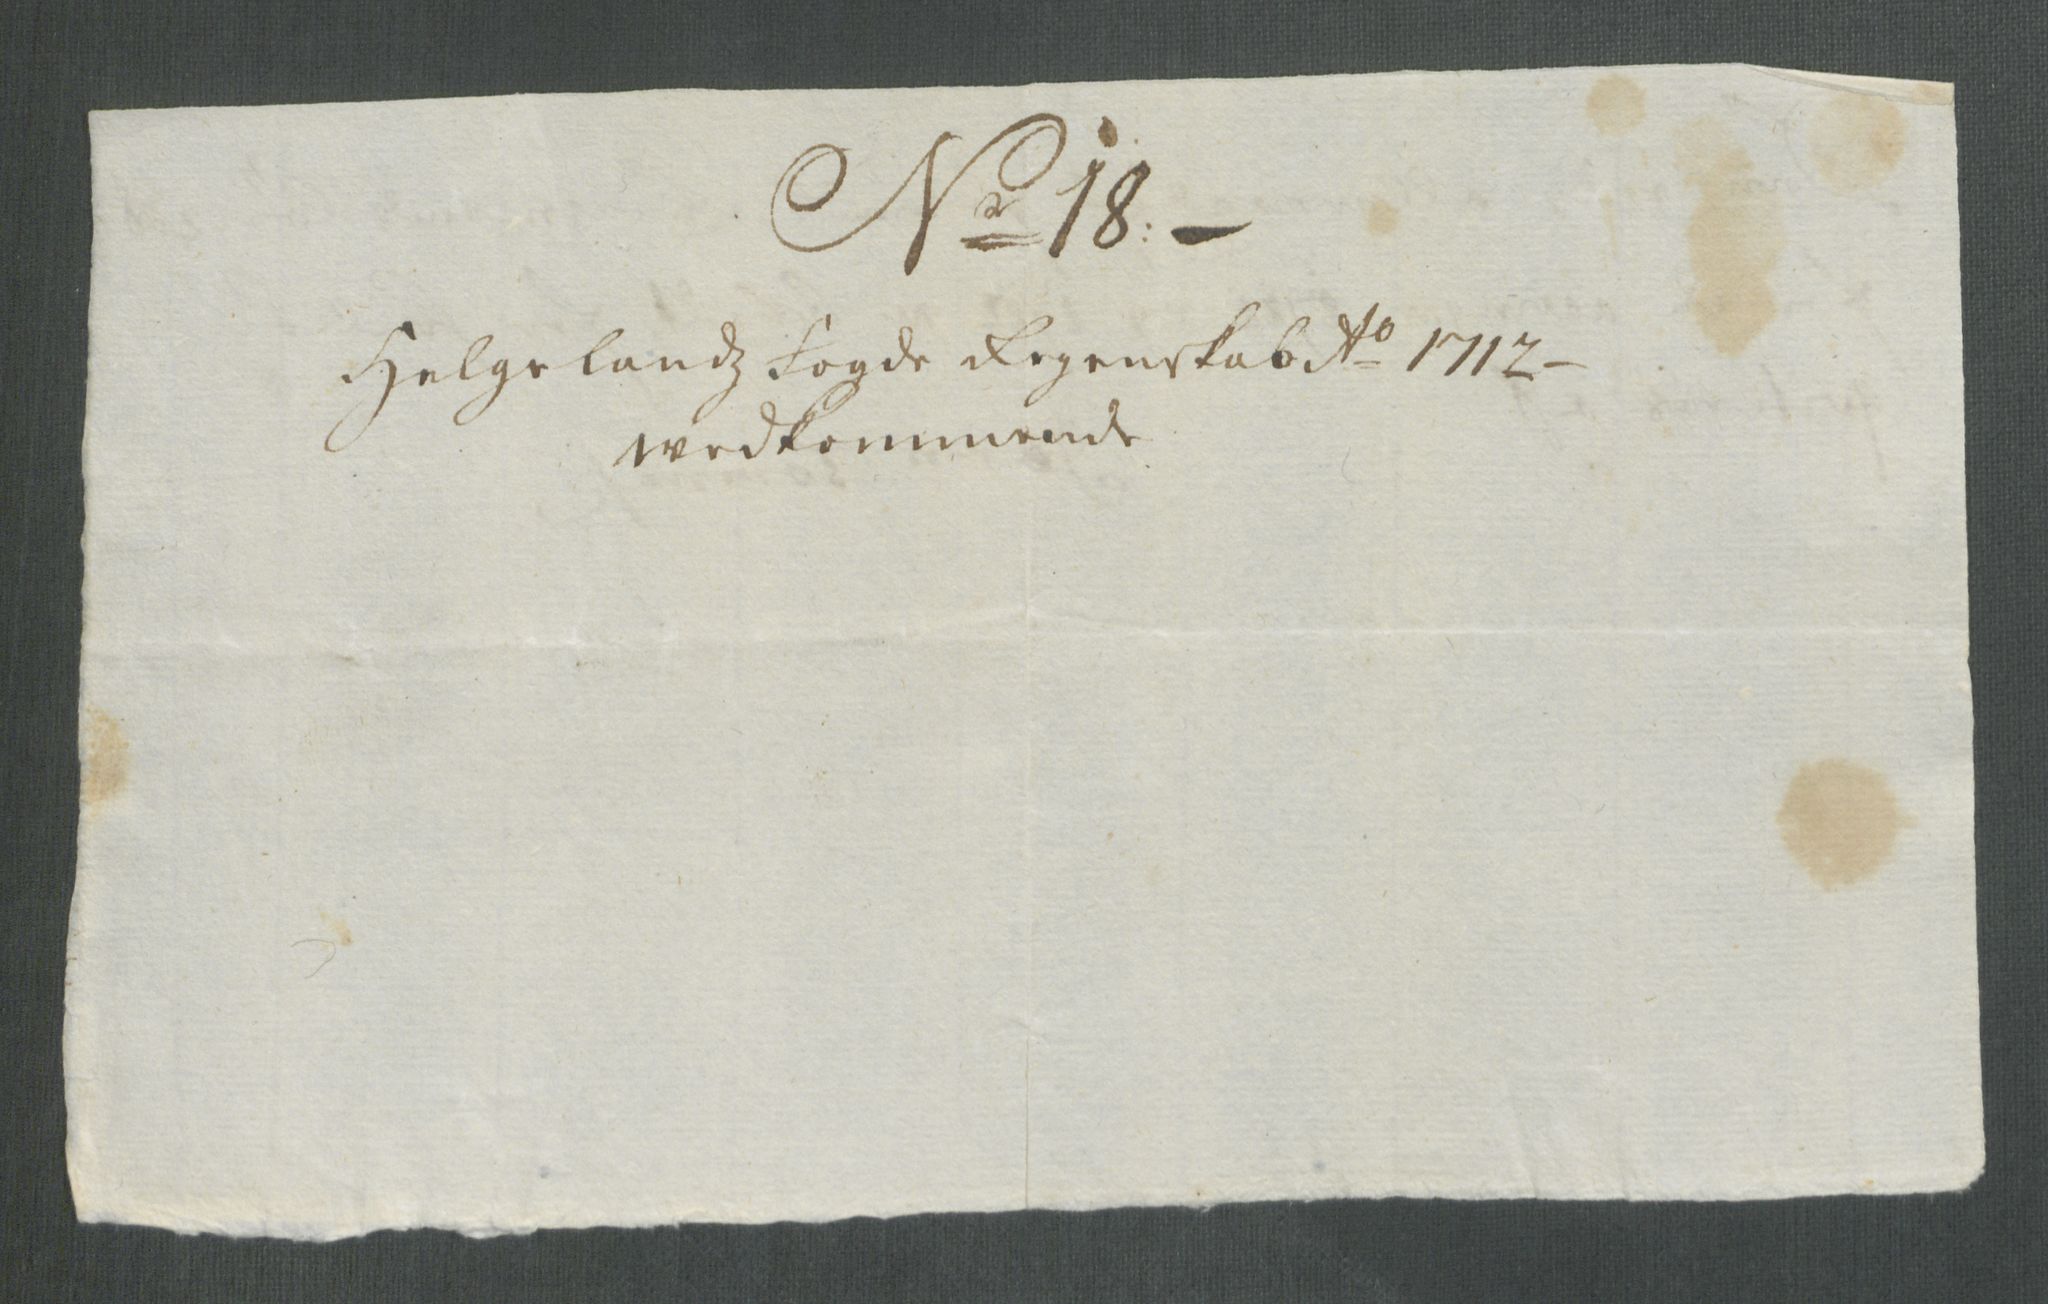 Nr 18: -
Helgelandz Fogde Regenskab Ao 1712 -
wedkommende